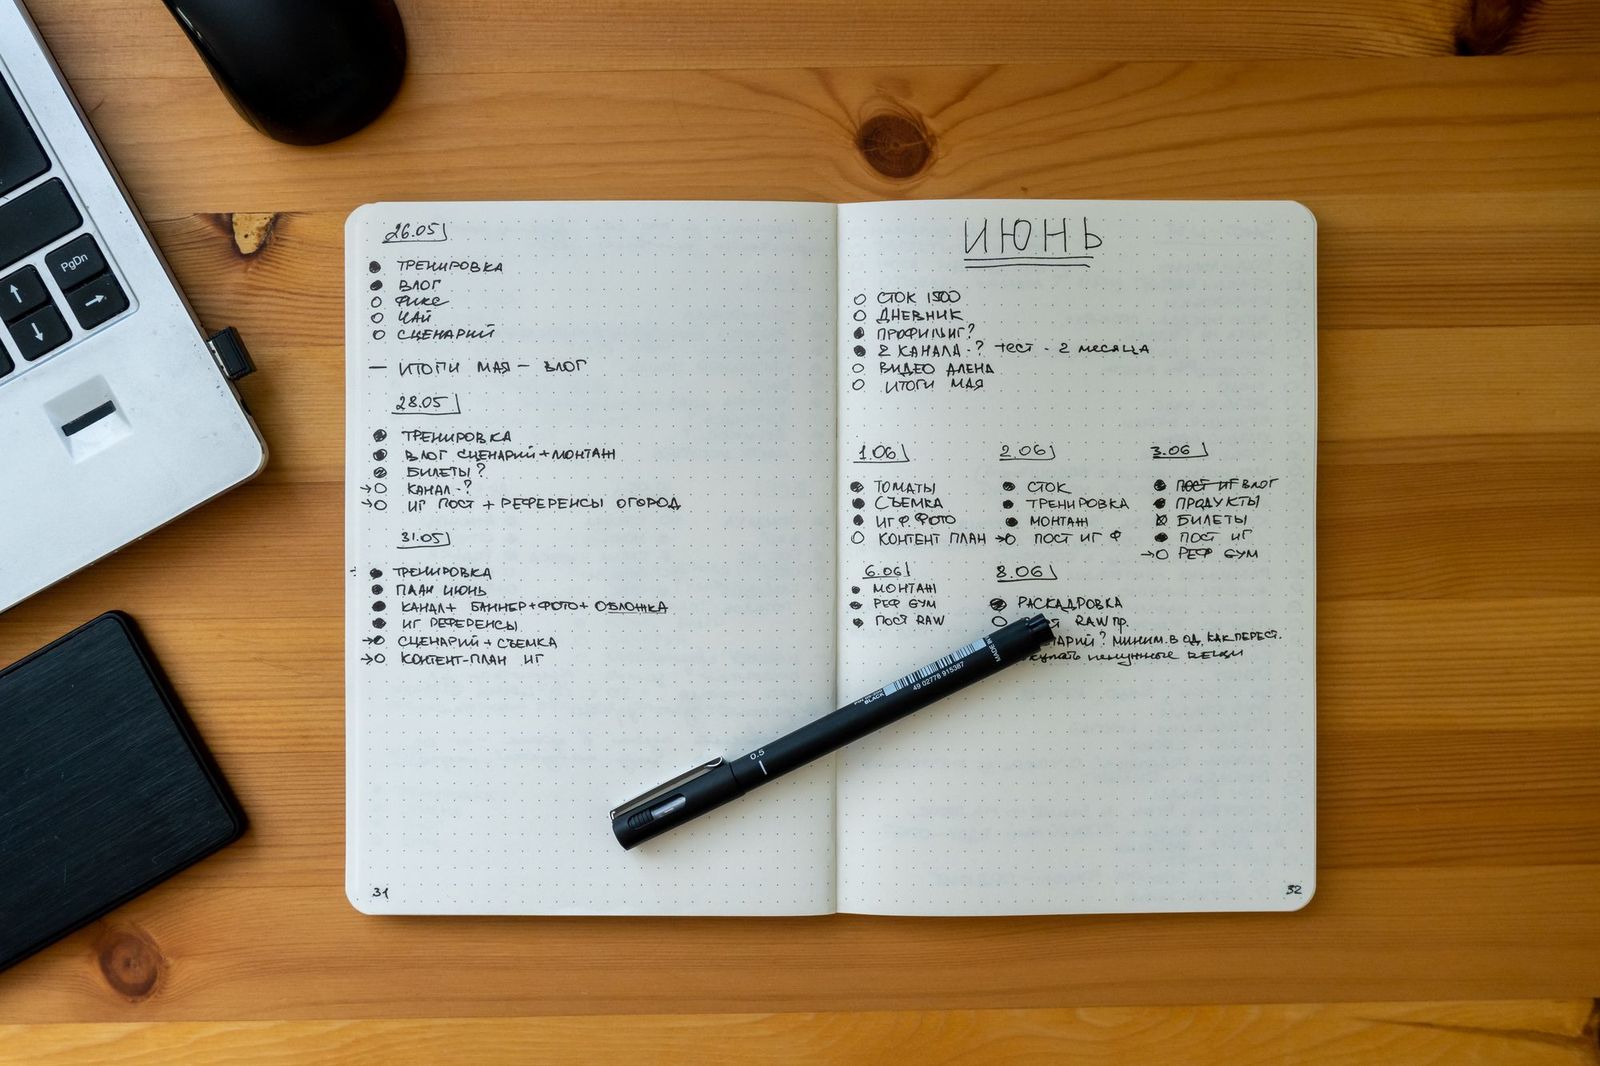 PgDn
26.05
ТРЕНИРОВКА
ВЛОГ
ФИКС
ЧАЙ
СЦЕНАРИЙ
— ИТОГИ МАЯ — ВЛОГ
28.05
ТРЕНИРОВКА
ВЛОГ СЦЕНАРИЙ+МОНТАЖ
БИЛЕТЫ?
КАНАЛ-?
ИГ ПОСТ + РЕФЕРЕНСЫ ОГОРОД
31.05
ТРЕНИРОВКА
ПЛАН ИЮНЬ
КАНАЛ+ БАННЕР+ФОТО+ ОБЛОЖКА
ИГ РЕФЕРЕНСЫ
СЦЕНАРИЙ+СЪЕМКА
КОНТЕНТ-ПЛАН ИГ
31
ИЮНЬ
СТОК 1500
ДНЕВНИК
ПРОФИЛЬ ИГ?
2 КАНАЛА-? тест - 2 месяца
ВИДЕО АЛЕНА
ИТОГИ МАЯ
1.06
ТОМАТЫ
СЪЕМКА
ИГ Ф. ФОТО
КОНТЕНТ ПЛАН
2.06
СТОК
ТРЕНИРОВКА
МОНТАЖ
ПОСТ ИГ Ф
3.06
ПОСТ ИГ ВЛОГ
ПРОДУКТЫ
БИЛЕТЫ
ПОСТ ИГ
РЕФ GYM
6.06
МОНТАЖ
РЕФ GYM
ПОСТ RAW
8.06
РАСКАДРОВКА
RAW пр.
МИНИМ. В ОД. КАК ПЕРЕСТ.
ненужные вещи
32
0.5
BLACK
49 02778 915387
MADE IN